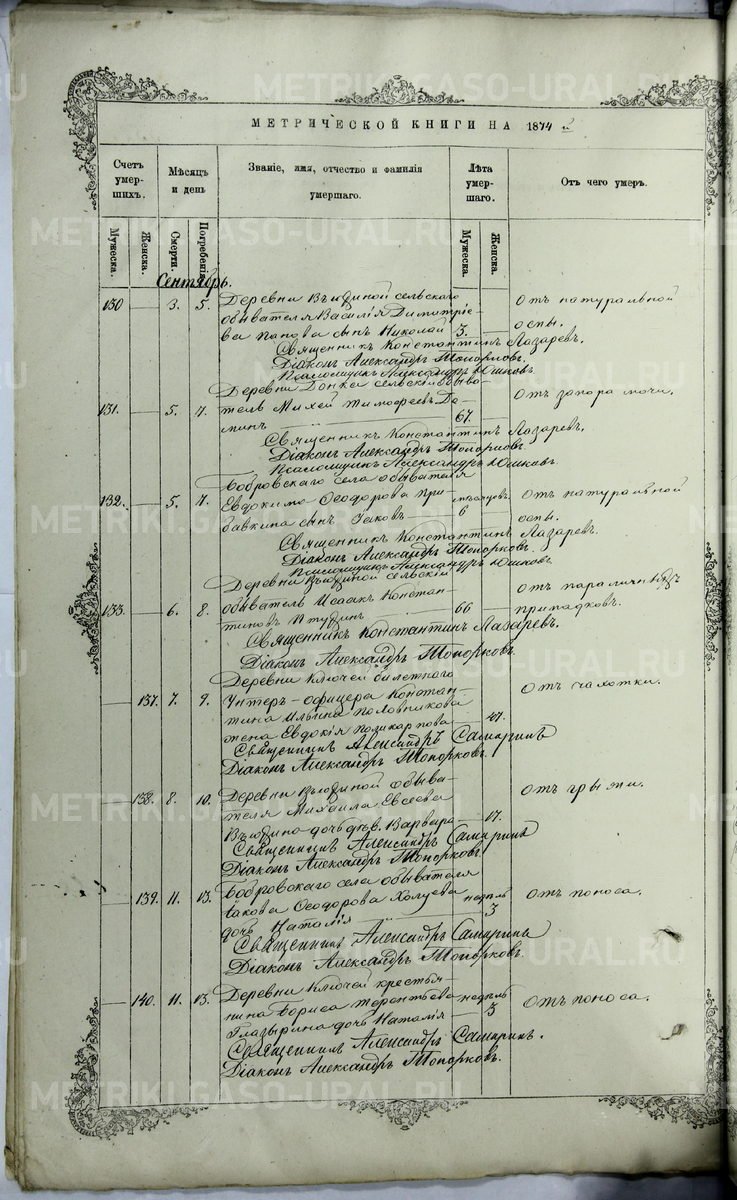 МЕТРИЧЕСКОЙ КНИГИ НА 1874
Счетъ умер-шихъ.
Мѣсяцъ и день
Званіе, имя, отчество и фамилія умершаго.
Лѣта умер-шаго.
Отъ чего умеръ.
Мужеска. Женска. Смерти. Погребенія. Мужеска. Женска.
Сентябрь.
130 3. 5. Деревни Въюдиной сельскаго
обывателя Василія Димитріе-
ва Панова сынъ Николай 3. Отъ натуральной
оспы.
Священникъ Константинъ Лазаревъ.
Діаконъ Александръ Топорковъ.
Псаломщикъ Александръ Юшковъ.
131. 5. 7. Деревни сельскій обыва-
тель Михей Тимофеевъ 67. Отъ запора мочи.
Священникъ Константинъ Лазаревъ.
Діаконъ Александръ Топорковъ.
Псаломщикъ Александръ Юшковъ.
132. 5. 7. Бобровскаго села обывателя
Евдокима Ѳеодорова При-
бавкина сынъ мѣсяцовъ. 6 Отъ натуральной
оспы.
Священникъ Константинъ Лазаревъ.
Діаконъ Александръ Топорковъ.
Псаломщикъ Александръ Юшковъ.
133. 6. 8. Деревни Въюдиной сельскій
обыватель Исаакъ Констан-
тиновъ 66 Отъ параличныхъ
припадковъ.
Священникъ Константинъ Лазаревъ.
Діаконъ Александръ Топорковъ.
137. 7. 9. Деревни Ключей билетнаго
Унтеръ-офицера Констан-
тина Ильина Половникова
жена Евдокія Поликарпова 47. Отъ чахотки.
Священникъ Александръ Самаринъ
Діаконъ Александръ Топорковъ.
138. 8. 10. Деревни Въюдиной обыва-
теля Михаила Евсеева
Въюдина дочь дѣв. Варвара 17. Отъ грыжи.
Священникъ Александръ Самаринъ
Діаконъ Александръ Топорковъ.
139. 11. 13. Бобровскаго села обывателя
Іакова Ѳеодорова Холуева
дочь Наталія недѣль 3 Отъ поноса.
Священникъ Александръ Самаринъ
Діаконъ Александръ Топорковъ.
140. 11. 13. Деревни Ключей крестья-
нина Бориса Терентьева
Глазырина дочь Наталія недѣль 3 Отъ поноса.
Священникъ Александръ Самаринъ.
Діаконъ Александръ Топорковъ.
METRIKI.GASO-URAL.RU